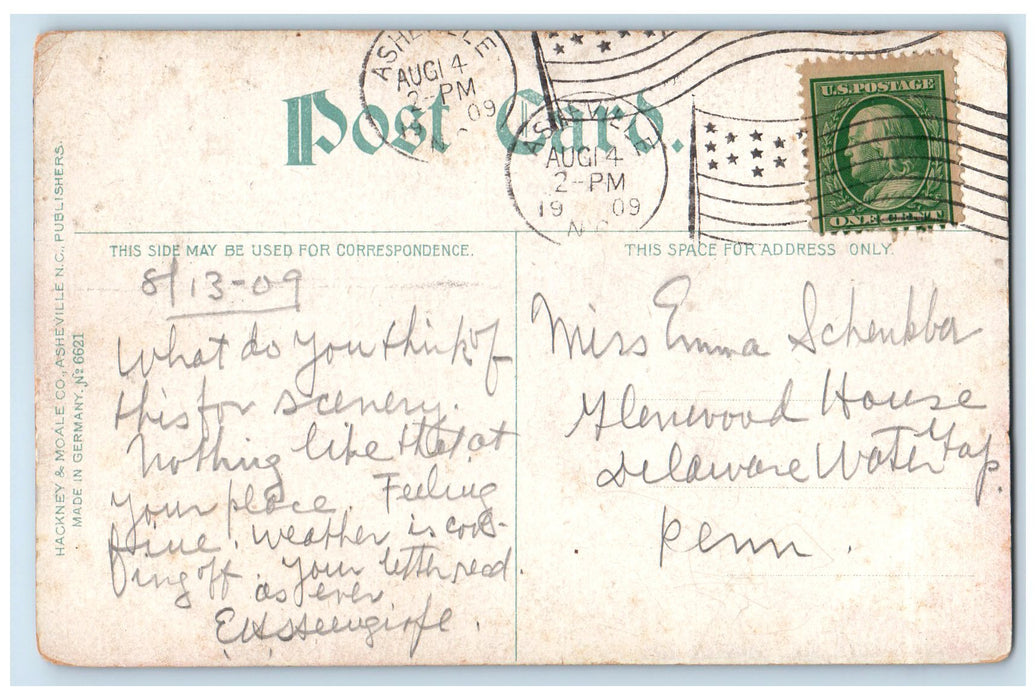 ASHEVILLE
AUG 14
2-PM
19 09
Post Card.
ASHEVILLE
AUG 14
2-PM
19 09
N.C.
U.S. POSTAGE
ONE CENT
HACKNEY & MOALE CO., ASHEVILLE N.C. PUBLISHERS.
MADE IN GERMANY. No 6621
THIS SIDE MAY BE USED FOR CORRESPONDENCE.
8/13-09
What do you think of
this for scenery.
Nothing like that at
your place. Feeling
fine. weather is cool-
ing off. Your letth recd
as ever
THIS SPACE FOR ADDRESS ONLY.
Miss Emma
Glenwood House
Delaware Water Gap.
Penn.